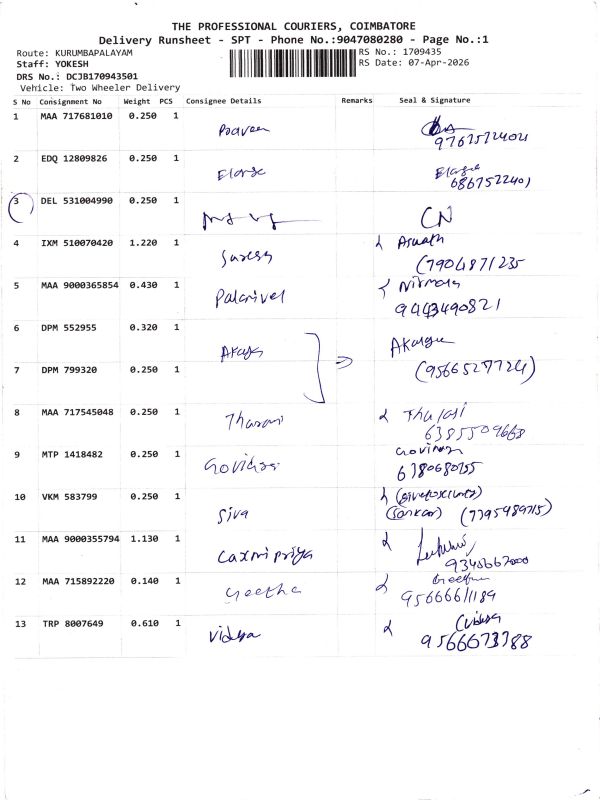 THE PROFESSIONAL COURIERS, COIMBATORE
Delivery Runsheet - SPT - Phone No.:9047080280 - Page No.:1
Route: KURUMBAPALAYAM RS No.: 1709435
Staff: YOKESH RS Date: 07-Apr-2026
DRS No.: DCJB170943501
Vehicle: Two Wheeler Delivery
S No Consignment No Weight PCS Consignee Details Remarks Seal & Signature
1 MAA 717681010 0.250 1 Praveen
2 EDQ 12809826 0.250 1
6867522401
3 DEL 531004990 0.250 1 CN
4 IXM 510070420 1.220 1 Suresh Aswath
(7904871235
5 MAA 9000365854 0.430 1 Palanivel Nirmala
9443490821
6 DPM 552955 0.320 1
7 DPM 799320 0.250 1 (9566527724)
8 MAA 717545048 0.250 1 Tharani Thulasi
6385509663
9 MTP 1418482 0.250 1
6380680755
10 VKM 583799 0.250 1 Siva
(Sankar) (7795989715)
11 MAA 9000355794 1.130 1 Laxmipriya
9345667000
12 MAA 715892220 0.140 1 Geetha Geetha
9566661189
13 TRP 8007649 0.610 1 Vidhya (Vidhya
9566673388